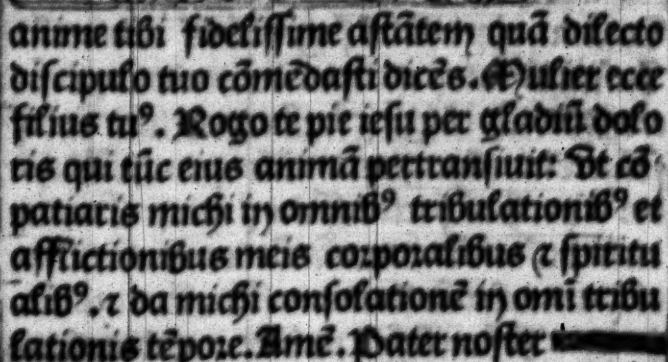 anime tibi fidelissime astātem quā dilecto
discipulo tuo cōmēdasti dicēs. Mulier ecce
filius tuꝰ. Rogo te pie iesu per gladiū dolo
ris qui tūc eius animā pertransiuit: Vt cō-
patiaris michi in omnibꝰ tribulationibꝰ et
afflictionibus meis corporalibus ⁊ spiritu
alibꝰ. ⁊ da michi consolationē in omī tribu
lationis tēpore. Amē. Pater noster